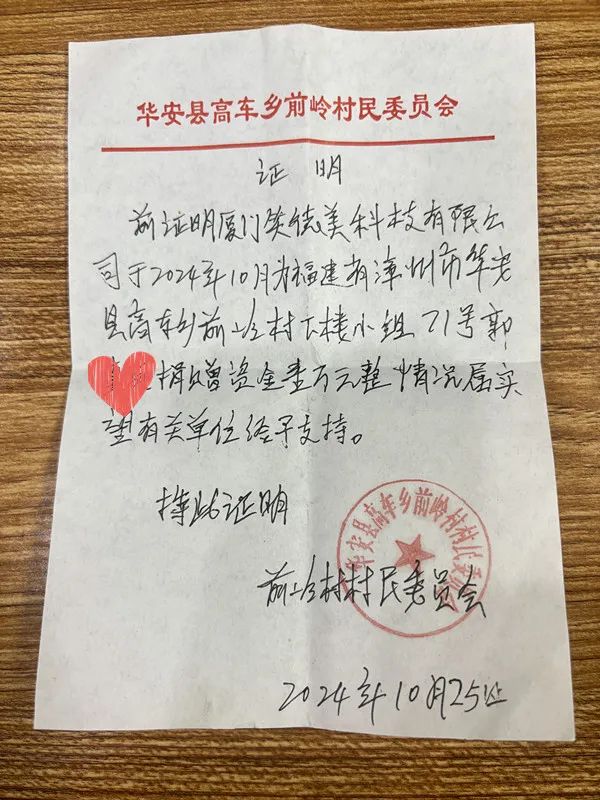 华安县高车乡前岭村民委员会
证 明
兹证明厦门荣德美科技有限公
司于2024年10月为福建省漳州市华安
县高车乡前岭村下楼小组71号郭
捐赠资金壹万元整 情况属实
望有关单位给予支持。
特此证明
华安县高车乡前岭村村民委员会
前岭村村民委员会
2024年10月25日